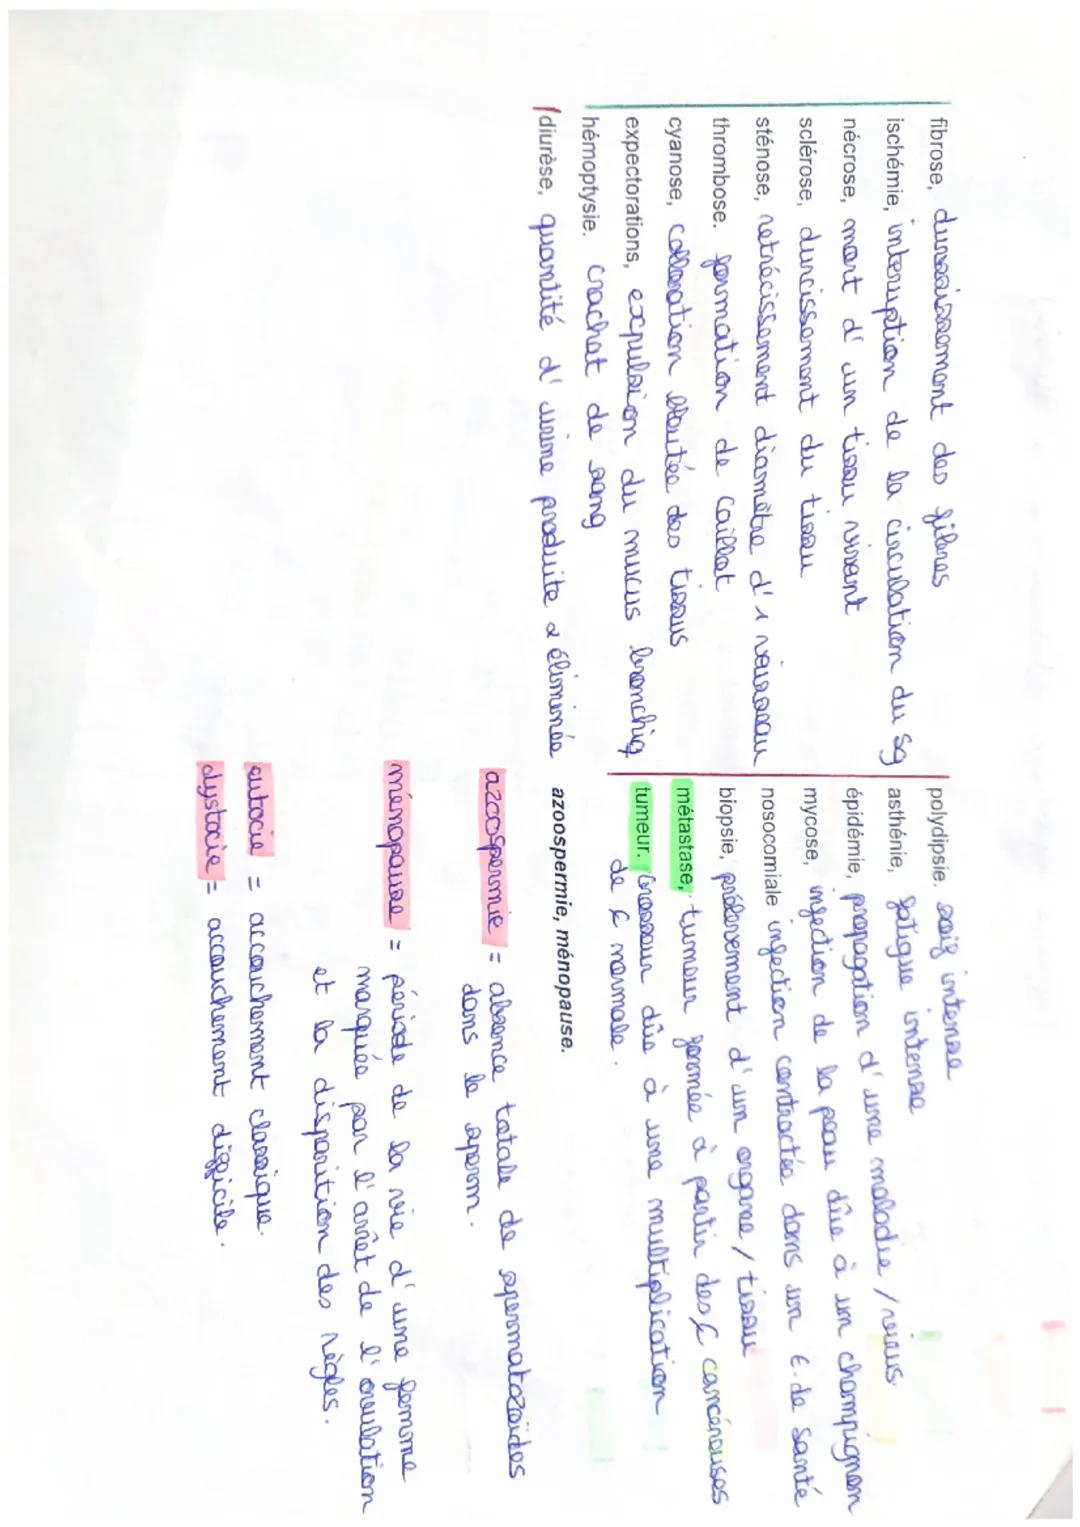 fibrose, durcissement des fibres
ischémie, interruption de la circulation du sg
nécrose, mort d'un tissu vivant
sclérose, durcissement du tissu
sténose, retrécissement diamètre d'1 vaisseau
thrombose. formation de caillot
cyanose, coloration bleutée des tissus
expectorations, expulsion du mucus bronchiq
hémoptysie. crachat de sang
diurèse, quantité d'urine produite & éliminée
polydipsie. soif intense
asthénie, fatigue intense
épidémie, propagation d'une maladie / virus
mycose, infection de la peau dûe à un champignon
nosocomiale infection contractée dans un É. de santé
biopsie, prélèvement d'un organe / tissu
métastase, tumeur formée à partir des ₵ cancéreuses
tumeur. Grosseur dûe à une multiplication
de ₵ normale.
azoospermie, ménopause.
azoospermie = absence totale de spermatozoïdes
dans le sperm.
ménopause = période de la vie d'une femme
marquée par l'arrêt de l'ovulation
et la disparition des règles.
eutocie = accouchement classique.
dystocie = accouchement difficile.